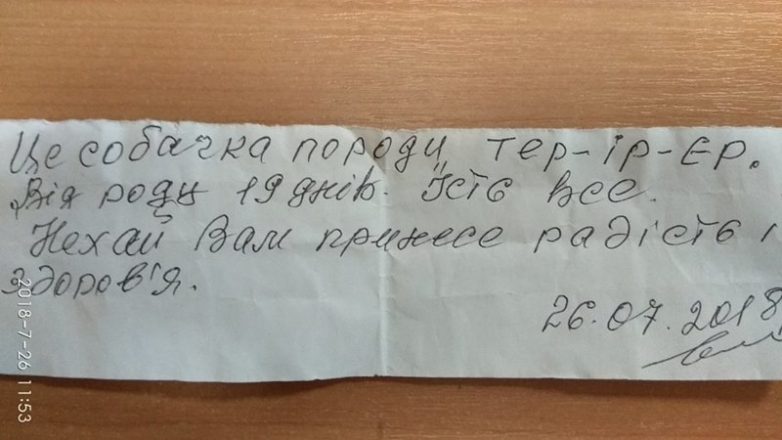 Це собачка породи тер-ір-єр.
Від роду 19 днів. Їсть все.
Нехай Вам принесе радість і
здоров'я.
26.07.2018
2018-7-26 11:53